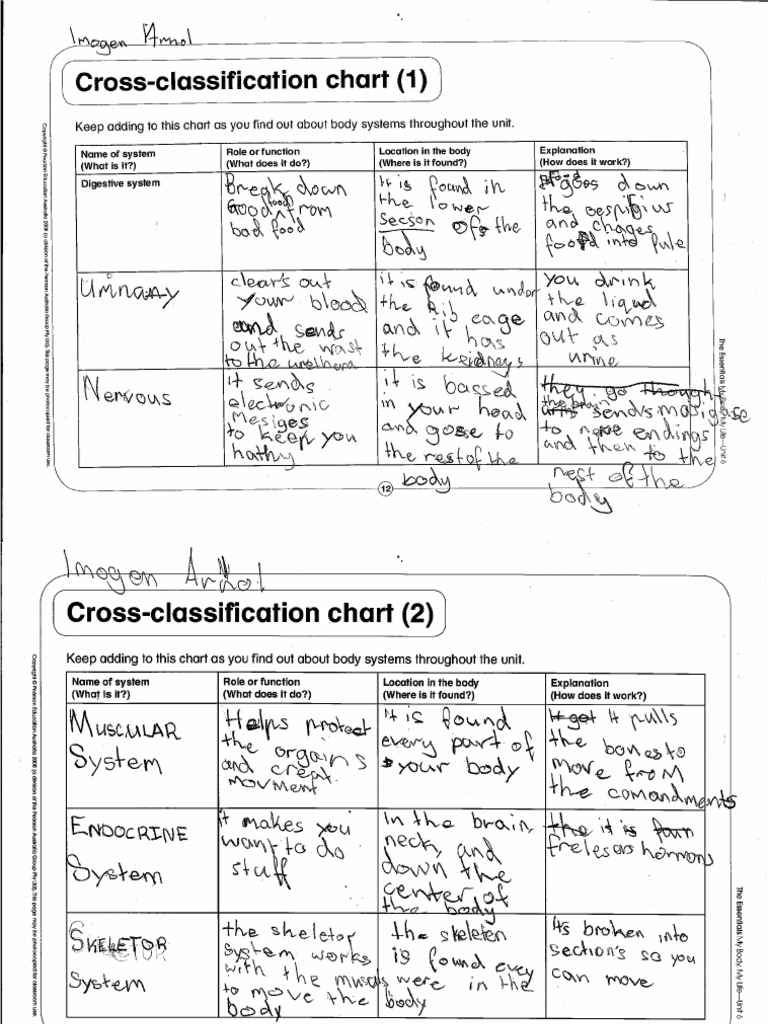 Imogen Arnol
Cross-classification chart (1)
Keep adding to this chart as you find out about body systems throughout the unit.
Name of system
(What is it?)
Role or function
(What does it do?)
Location in the body
(Where is it found?)
Explanation
(How does it work?)
Digestive system
Break down
good (food) from
bad food
It is found in
the lower
Secson of the
body
goes down
the oespifius
and chages
food into Pule
clear's out
your blood
and sends
out the wast
to the urethera
it is found under
the Rib cage
and it has
the keidneys
you drink
the liqud
and comes
out as
urine
Nervous
it sends
electronic
mesiges
to keep you
hathy
it is bassed
in your head
and gose to
the rest of the
body
they go though
sends masigase
to nerve endings
and then to the
rest of the
body
12
Copyright © Pearson Education Australia 2008 (a division of Pearson Australia Group Pty Ltd). This page may be photocopied for classroom use.
The Essentials My Body, My Life—Unit 6
Imogen Arnol
Cross-classification chart (2)
Keep adding to this chart as you find out about body systems throughout the unit.
Name of system
(What is it?)
Role or function
(What does it do?)
Location in the body
(Where is it found?)
Explanation
(How does it work?)
MUSCULAR
System
Helps protect
the orgains
and creat
movment
it is found
every part of
your body
It get It pulls
the bones to
move from
the comandments
ENDOCRINE
System
it makes you
want to do
stuff
in the brain,
neck, and
down the
center of
the body
the it is
freleses hormons
SKELETOR
System
the skeletor
system works
with the muscals
to move the
body
the skeleten
is found evey
were in the
body
its broken into
section's so you
can move
Copyright © Pearson Education Australia 2008 (a division of Pearson Australia Group Pty Ltd). This page may be photocopied for classroom use.
The Essentials My Body, My Life—Unit 6